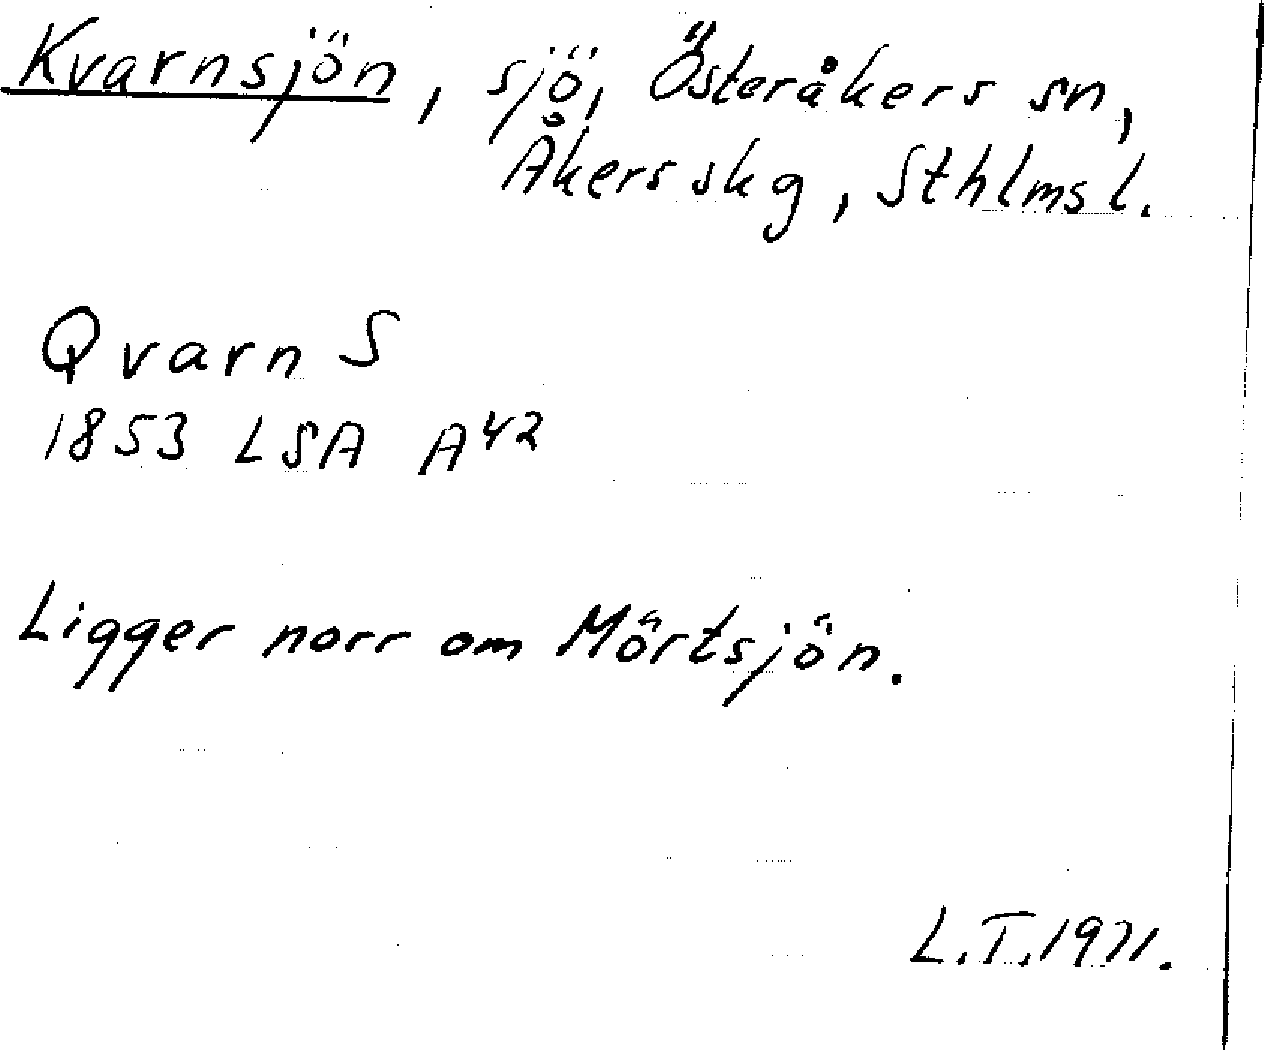 Kvarnsjön, sjö, Österåkers sn,
Åkers skg, Sthlms l.
Qvarn S
1853 LSA A 42
Ligger norr om Mörtsjön.
L.T. 1971.